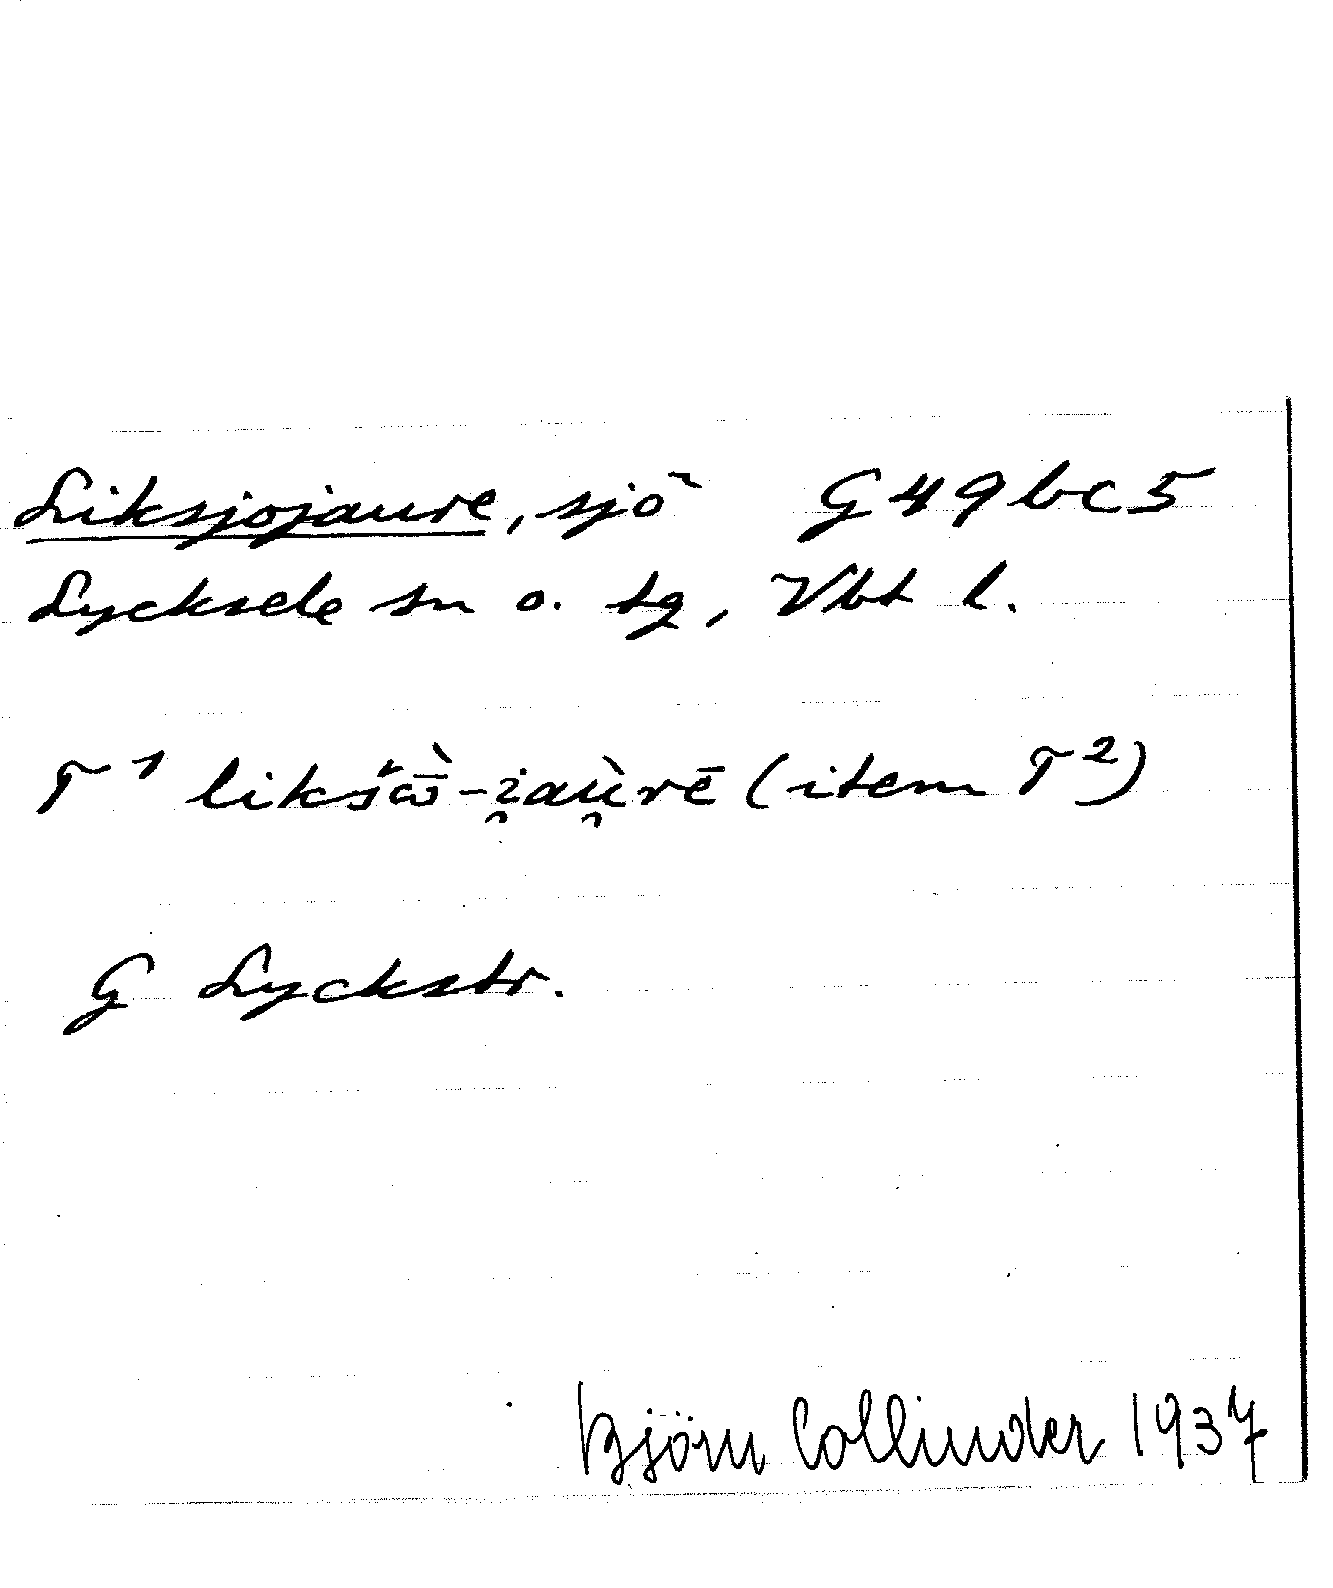 Liksjojaure, sjö G 49 bc 5
Lycksele sn o. tg, Vbt l.
T¹ likšɷ̄̀-i̯aù̯rē (item T²)
G Lyckstr.
Björn Collinder 1937